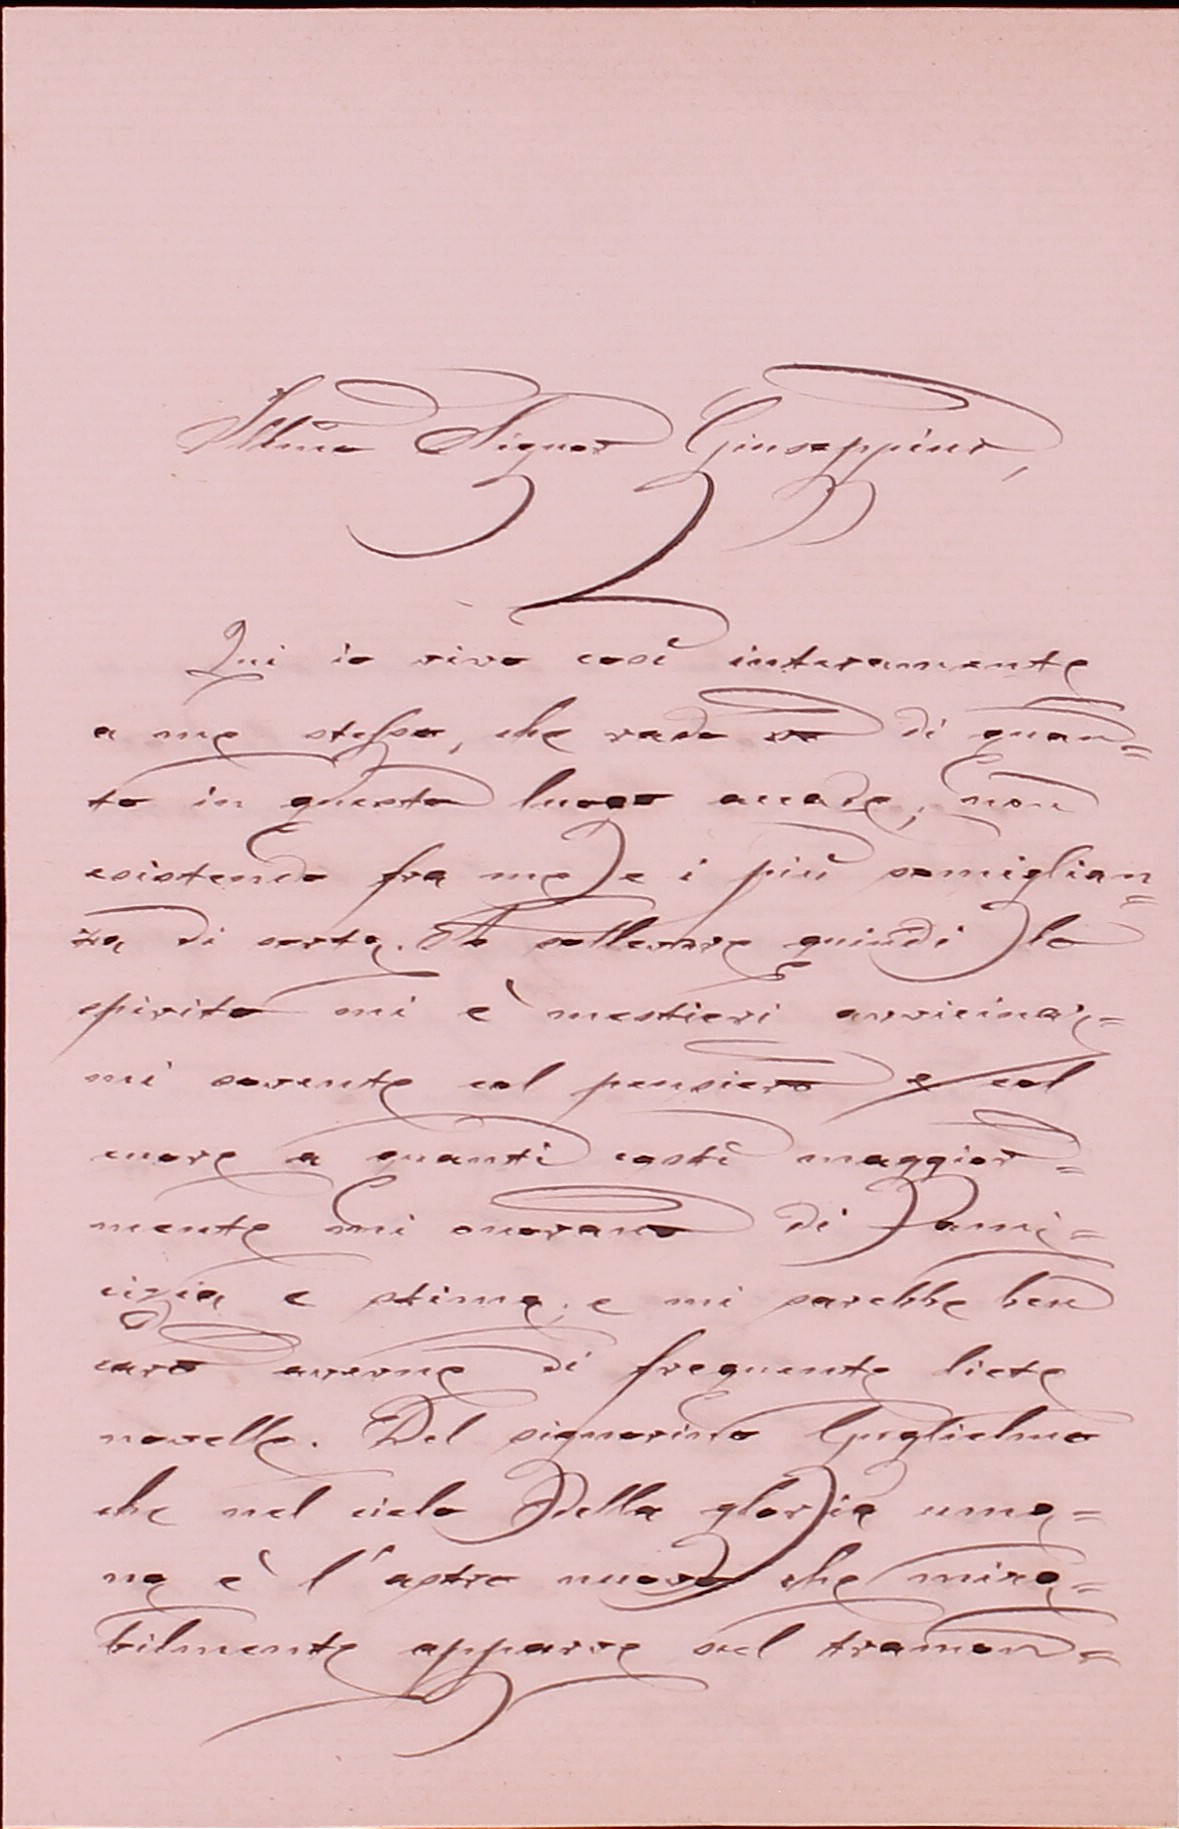 Illmo Signor Giuseppino,
Qui io vivo così interamente
a me stesso, che rado so di quan=
to in questo luogo accade, non
esistendo fra me e i più somiglian=
za di sorta. A sollevare quindi lo
spirito mi è mestieri avvicinar=
mi sovente col pensiero e col
cuore a quanti costì maggior=
mente mi onorano di l'ami=
cizia e stima, e mi sarebbe ben
caro averne di frequente liete
novelle. Del signorino Guglielmo
che nel cielo della gloria uma=
na è l'astro nuovo che mira=
bilmente apparve sul tramon=